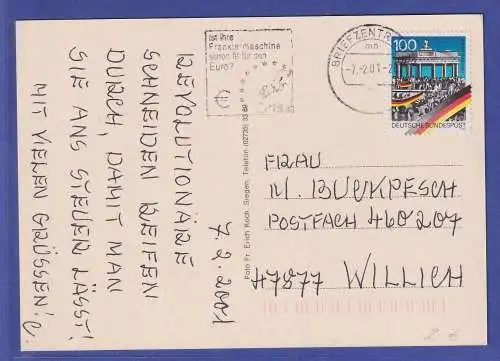 7.2.2001
REVOLUTIONÄRE
SCHNEIDEN REIFEN
DURCH, DAMIT MAN
SIE ANS STEUER LÄSST!
MIT VIELEN GRÜSSEN!
Foto Fr. Erich Koch, Siegen, Telefon (02735) 33
Ist Ihre
Frankiermaschine
schon fit für den
Euro?
BRIEFZENTR
-7.-2.01-
100
DEUTSCHE BUNDESPOST
FRAU
M. BUCKPESCH
POSTFACH 460207
47877 WILLICH